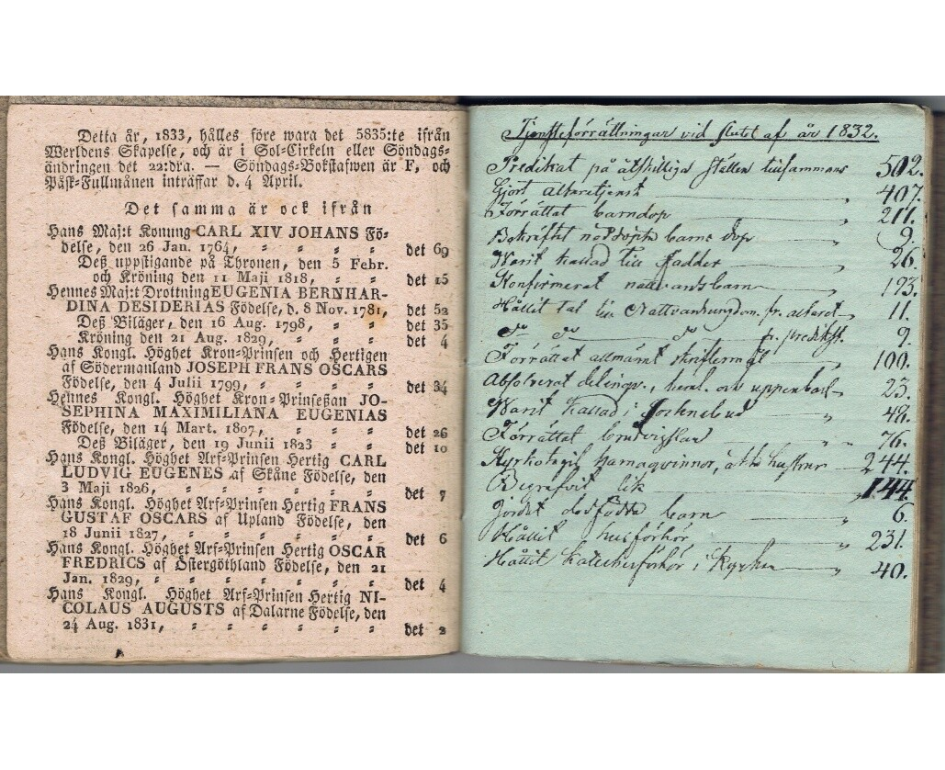 Detta år, 1833, hålles före wara det 5835:te ifrån
Werldens Skapelse, och är i Sol-Cirkeln eller Söndags-
ändringen det 22:dra. — Söndags-Bokstafwen är F, och
Påsk-Fullmånen inträffar d. 4 April.
Det samma är ock ifrån
Hans Maj:t Konung CARL XIV JOHANS Fö-
delse, den 26 Jan. 1764, det 69
Deß uppstigande på Thronen, den 5 Febr.
och Kröning den 11 Maji 1818, det 15
Hennes Maj:t Drottning EUGENIA BERNHAR-
DINA DESIDERIAS Födelse, d. 8 Nov. 1781, det 52
Deß Biläger, den 16 Aug. 1798, det 35
Kröning den 21 Aug. 1829, det 4
Hans Kongl. Höghet Kron-Prinsen och Hertigen
af Södermanland JOSEPH FRANS OSCARS
Födelse, den 4 Julii 1799, det 34
Hennes Kongl. Höghet Kron-Prinseßan JO-
SEPHINA MAXIMILIANA EUGENIAS
Födelse, den 14 Mart. 1807, det 26
Deß Biläger, den 19 Junii 1823 det 10
Hans Kongl. Höghet Arf-Prinsen Hertig CARL
LUDVIG EUGENES af Skåne Födelse, den
3 Maji 1826, det 7
Hans Kongl. Höghet Arf-Prinsen Hertig FRANS
GUSTAF OSCARS af Upland Födelse, den
18 Junii 1827, det 6
Hans Kongl. Höghet Arf-Prinsen Hertig OSCAR
FREDRICS af Östergöthland Födelse, den 21
Jan. 1829, det 4
Hans Kongl. Höghet Arf-Prinsen Hertig NI-
COLAUS AUGUSTS af Dalarne Födelse, den
24 Aug. 1831, det 2
Tjensteförrättningar vid slutet af år 1832.
Predikat på åtskilliga ställen tillsammans 502.
Gjort altaretjenst 407.
Förrättat barndop 211.
Bekräftat nöddöpta barns dop 9.
Warit kallad till fadder 26.
Konfirmerat nattvardsbarn 193.
Hållit tal till Nattvardsungdom. fr. altaret 11.
D:o D:o D:o fr. predikst. 9.
Förrättat allmänt skriftermål 100.
Absolverat delinqv., heml. och uppenbarl. 23.
Warit kallad i sockenbud 48.
Förrättat brudvigslar 76.
Kyrkotagit barnaqvinnor, äkta hustrur 244.
Begrafvit lik 144.
Jordat dödfödda barn 6.
Hållit husförhör 231.
Hållit kateketförhör i Kyrkan 40.